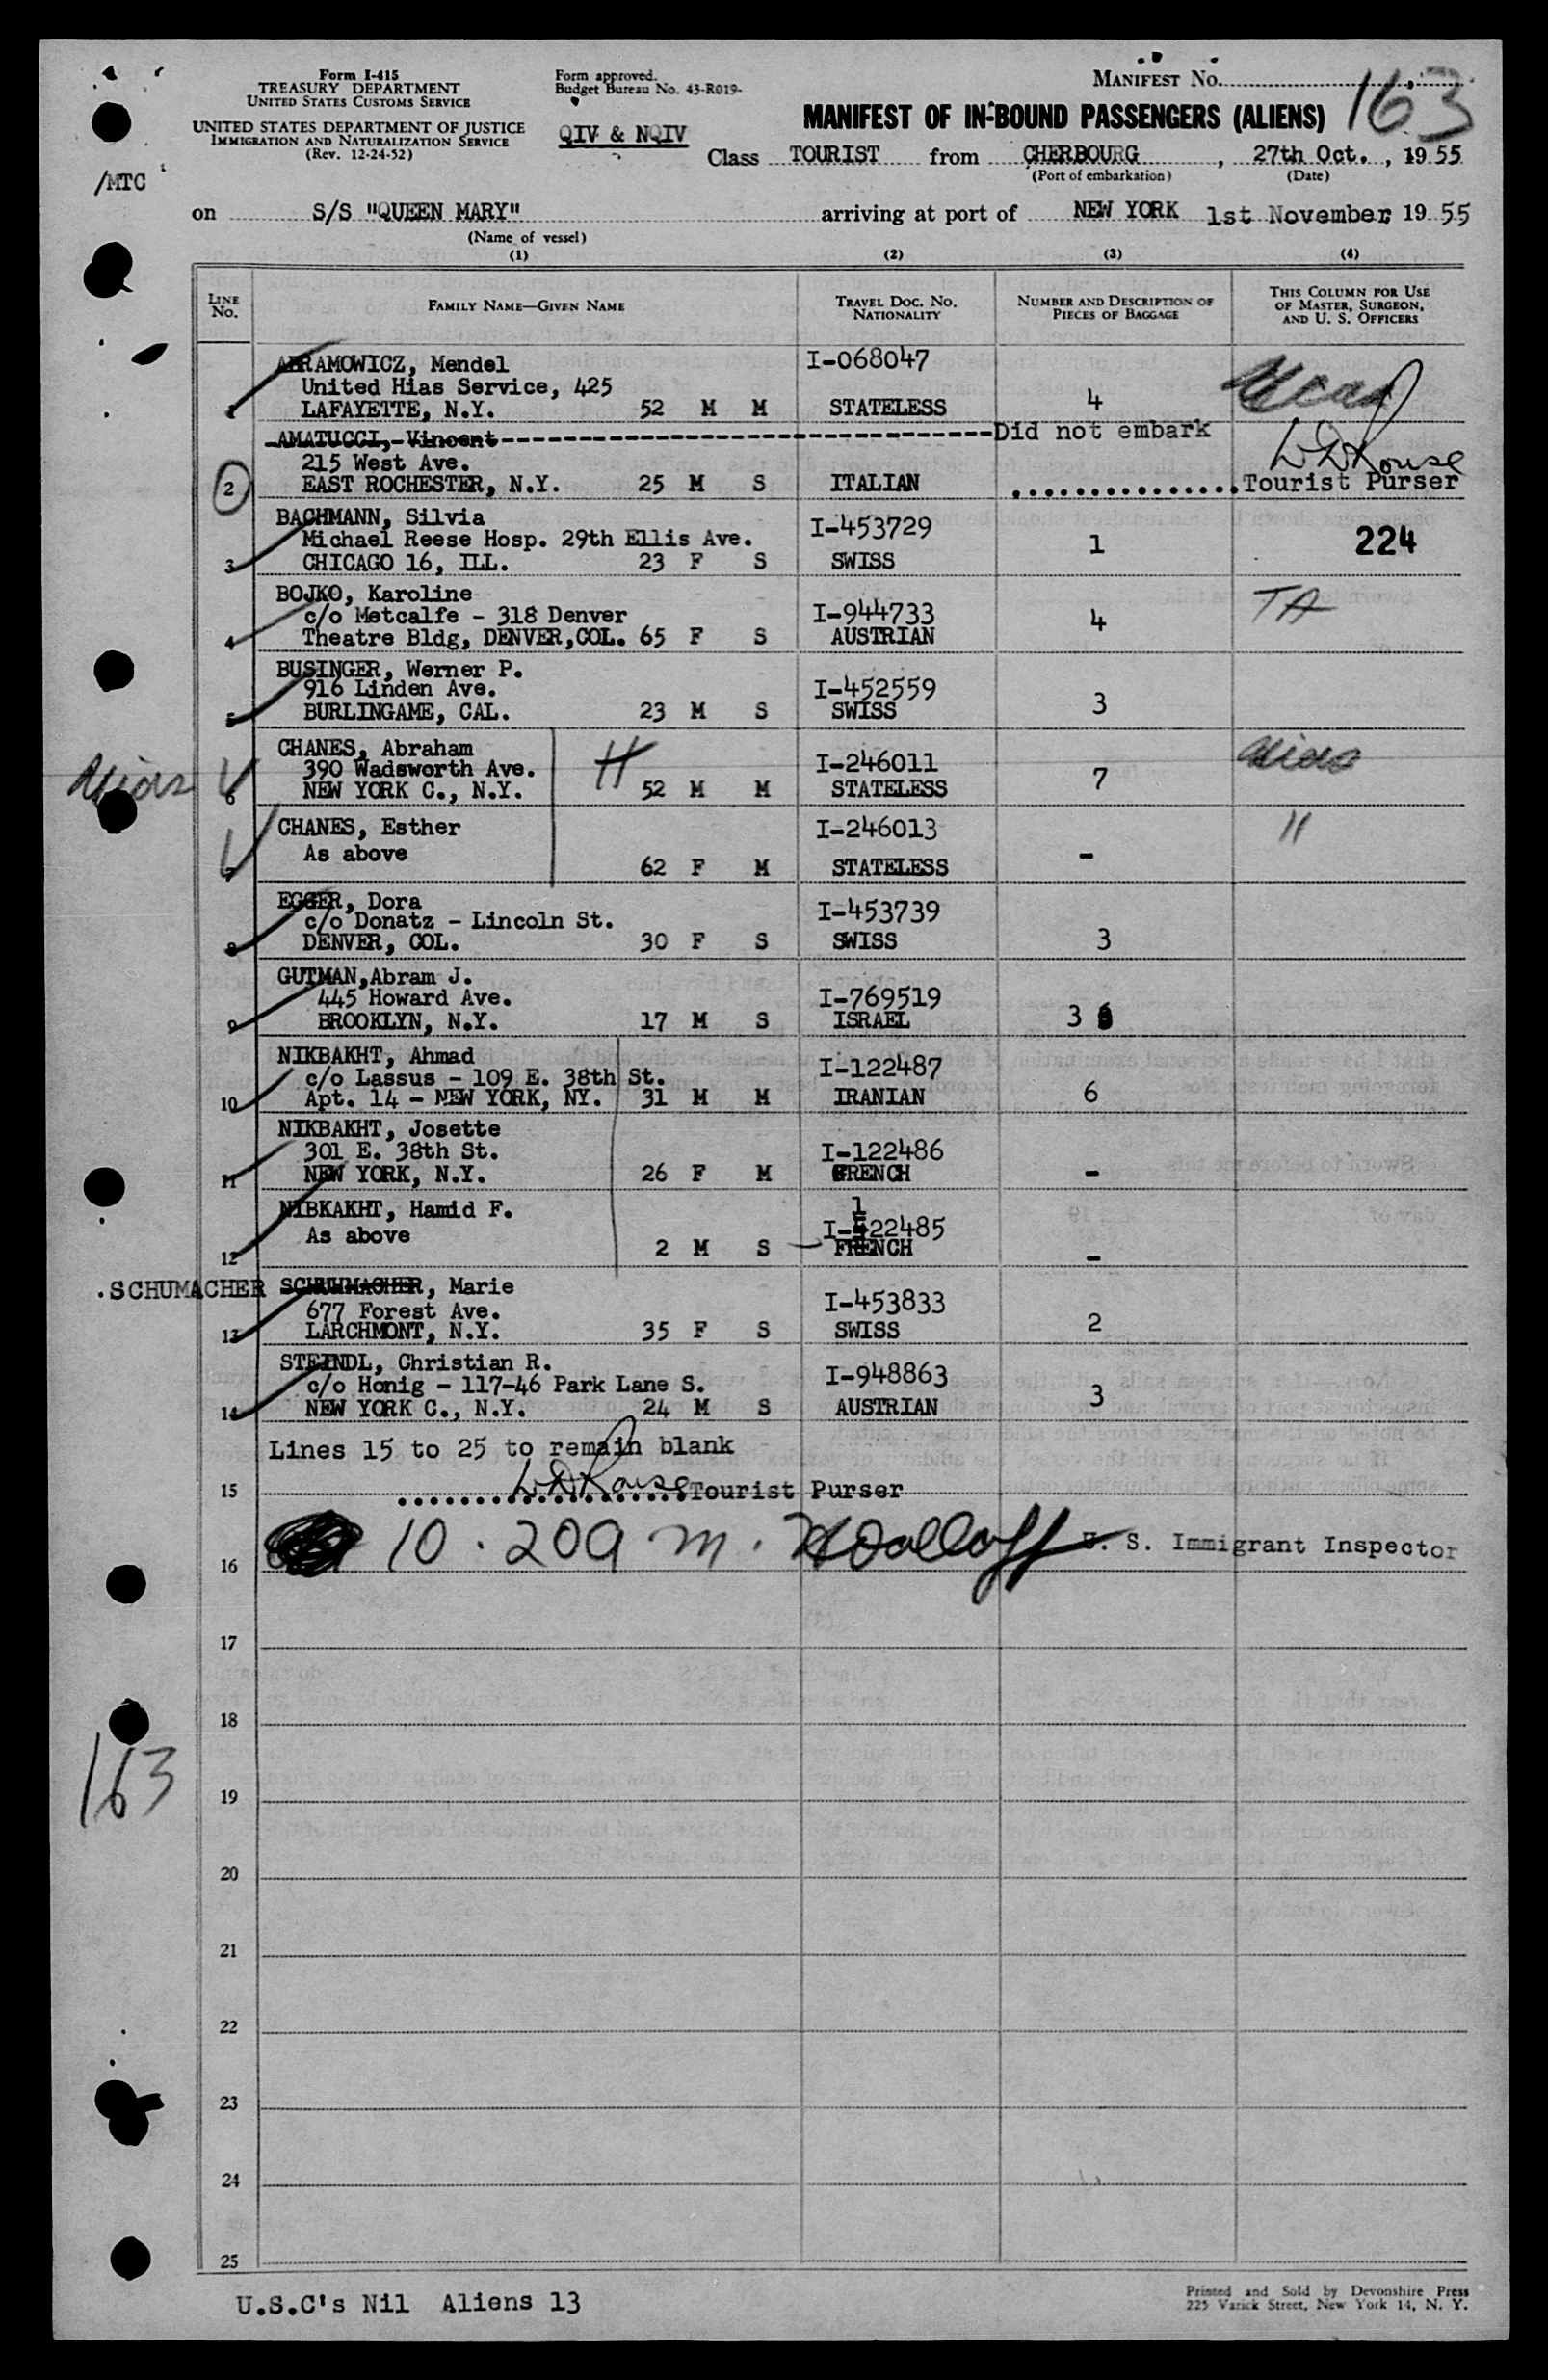 Form I-415
TREASURY DEPARTMENT
UNITED STATES CUSTOMS SERVICE
UNITED STATES DEPARTMENT OF JUSTICE
IMMIGRATION AND NATURALIZATION SERVICE
(Rev. 12-24-52)
/MTC
Form approved.
Budget Bureau No. 43-R019-
QIV & NQIV
MANIFEST No. 163
MANIFEST OF IN-BOUND PASSENGERS (ALIENS)
Class TOURIST from CHERBOURG, 27th Oct., 1955
(Port of embarkation) (Date)
on S/S "QUEEN MARY" arriving at port of NEW YORK 1st November, 1955
(Name of vessel)
(1) (2) (3) (4)
LINE No. FAMILY NAME—GIVEN NAME TRAVEL DOC. NO. NATIONALITY NUMBER AND DESCRIPTION OF PIECES OF BAGGAGE THIS COLUMN FOR USE OF MASTER, SURGEON, AND U. S. OFFICERS
ABRAMOWICZ, Mendel I-068047
United Hias Service, 425
1 LAFAYETTE, N.Y. 52 M M STATELESS 4
AMATUCCI, Vincent Did not embark
215 West Ave.
2 EAST ROCHESTER, N.Y. 25 M S ITALIAN Tourist Purser
BACHMANN, Silvia I-453729
Michael Reese Hosp. 29th Ellis Ave. 1 224
3 CHICAGO 16, ILL. 23 F S SWISS
BOJKO, Karoline TA
c/o Metcalfe - 318 Denver I-944733 4
4 Theatre Bldg, DENVER,COL. 65 F S AUSTRIAN
BUSINGER, Werner P.
916 Linden Ave. I-452559
5 BURLINGAME, CAL. 23 M S SWISS 3
CHANES, Abraham H
390 Wadsworth Ave. I-246011
6 NEW YORK C., N.Y. 52 M M STATELESS 7
CHANES, Esther I-246013 "
As above
7 62 F M STATELESS -
EGGER, Dora I-453739
c/o Donatz - Lincoln St.
8 DENVER, COL. 30 F S SWISS 3
GUTMAN,Abram J.
445 Howard Ave. I-769519
9 BROOKLYN, N.Y. 17 M S ISRAEL 3
NIKBAKHT, Ahmad I-122487
c/o Lassus - 109 E. 38th St.
10 Apt. 14 - NEW YORK, NY. 31 M M IRANIAN 6
NIKBAKHT, Josette
301 E. 38th St. I-122486
11 NEW YORK, N.Y. 26 F M FRENCH -
NIBKAKHT, Hamid F. 1
As above I-422485
12 2 M S FRENCH -
.SCHUMACHER SCHUHMACHER, Marie I-453833
677 Forest Ave.
13 LARCHMONT, N.Y. 35 F S SWISS 2
STEINDL, Christian R. I-948863
c/o Honig - 117-46 Park Lane S. 3
14 NEW YORK C., N.Y. 24 M S AUSTRIAN
Lines 15 to 25 to remain blank
15 Tourist Purser
16 10.20a m. U. S. Immigrant Inspector
17
18
163
19
20
21
22
23
24
25
U.S.C's Nil Aliens 13
Printed and Sold by Devonshire Press
225 Varick Street, New York 14, N. Y.